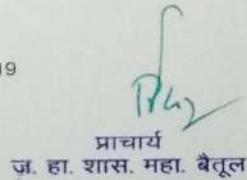 19
प्राचार्य
ज. हा. शास. महा. बैतूल